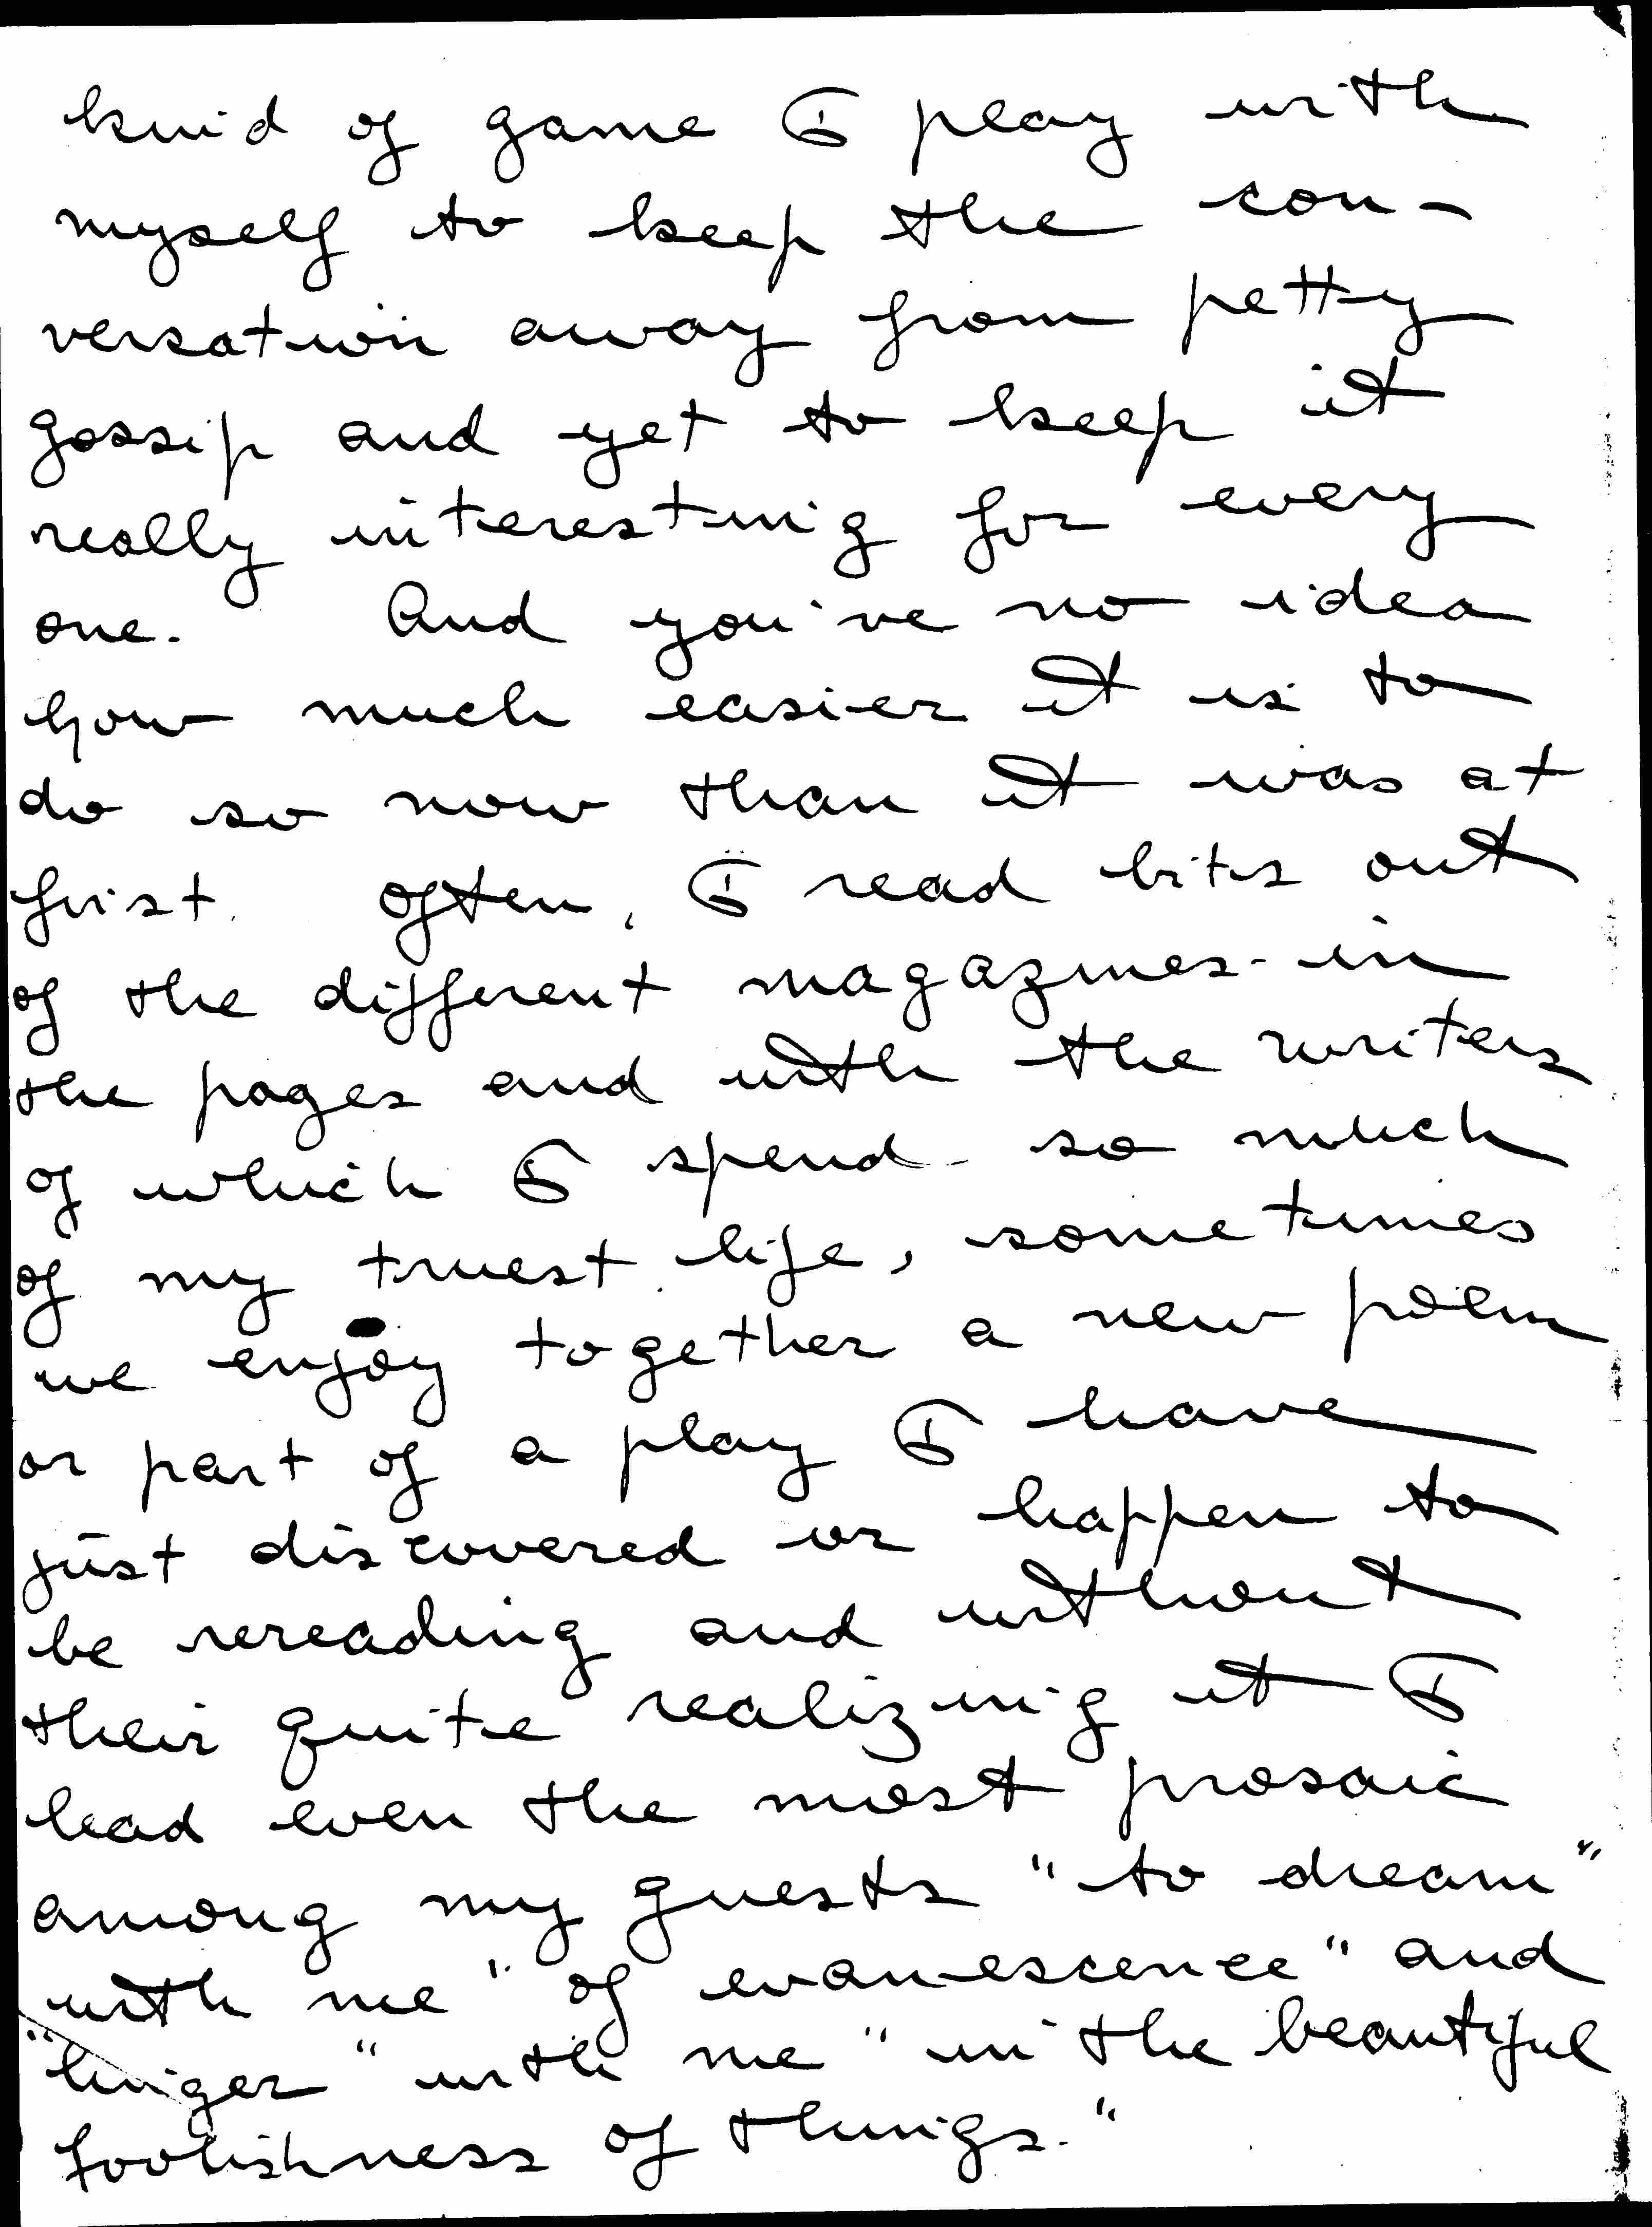 kind of game I play with
myself to keep the con-
versation away from petty
gossip and yet to keep it
really interesting for every
one. And you've no idea
how much easier it is to
do so now than it was at
first. Often, I read bits out
of the different magazines - in
the pages and with the writers
of which I spend so much
of my truest life, sometimes
we enjoy together a new poem
or part of a play I have
just discovered or happen to
be rereading and without
their quite realizing it I
lead even the most prosaic
among my guests "to dream"
with me "of evanescence" and
"linger" with me "in the beautiful
foolishness of things."